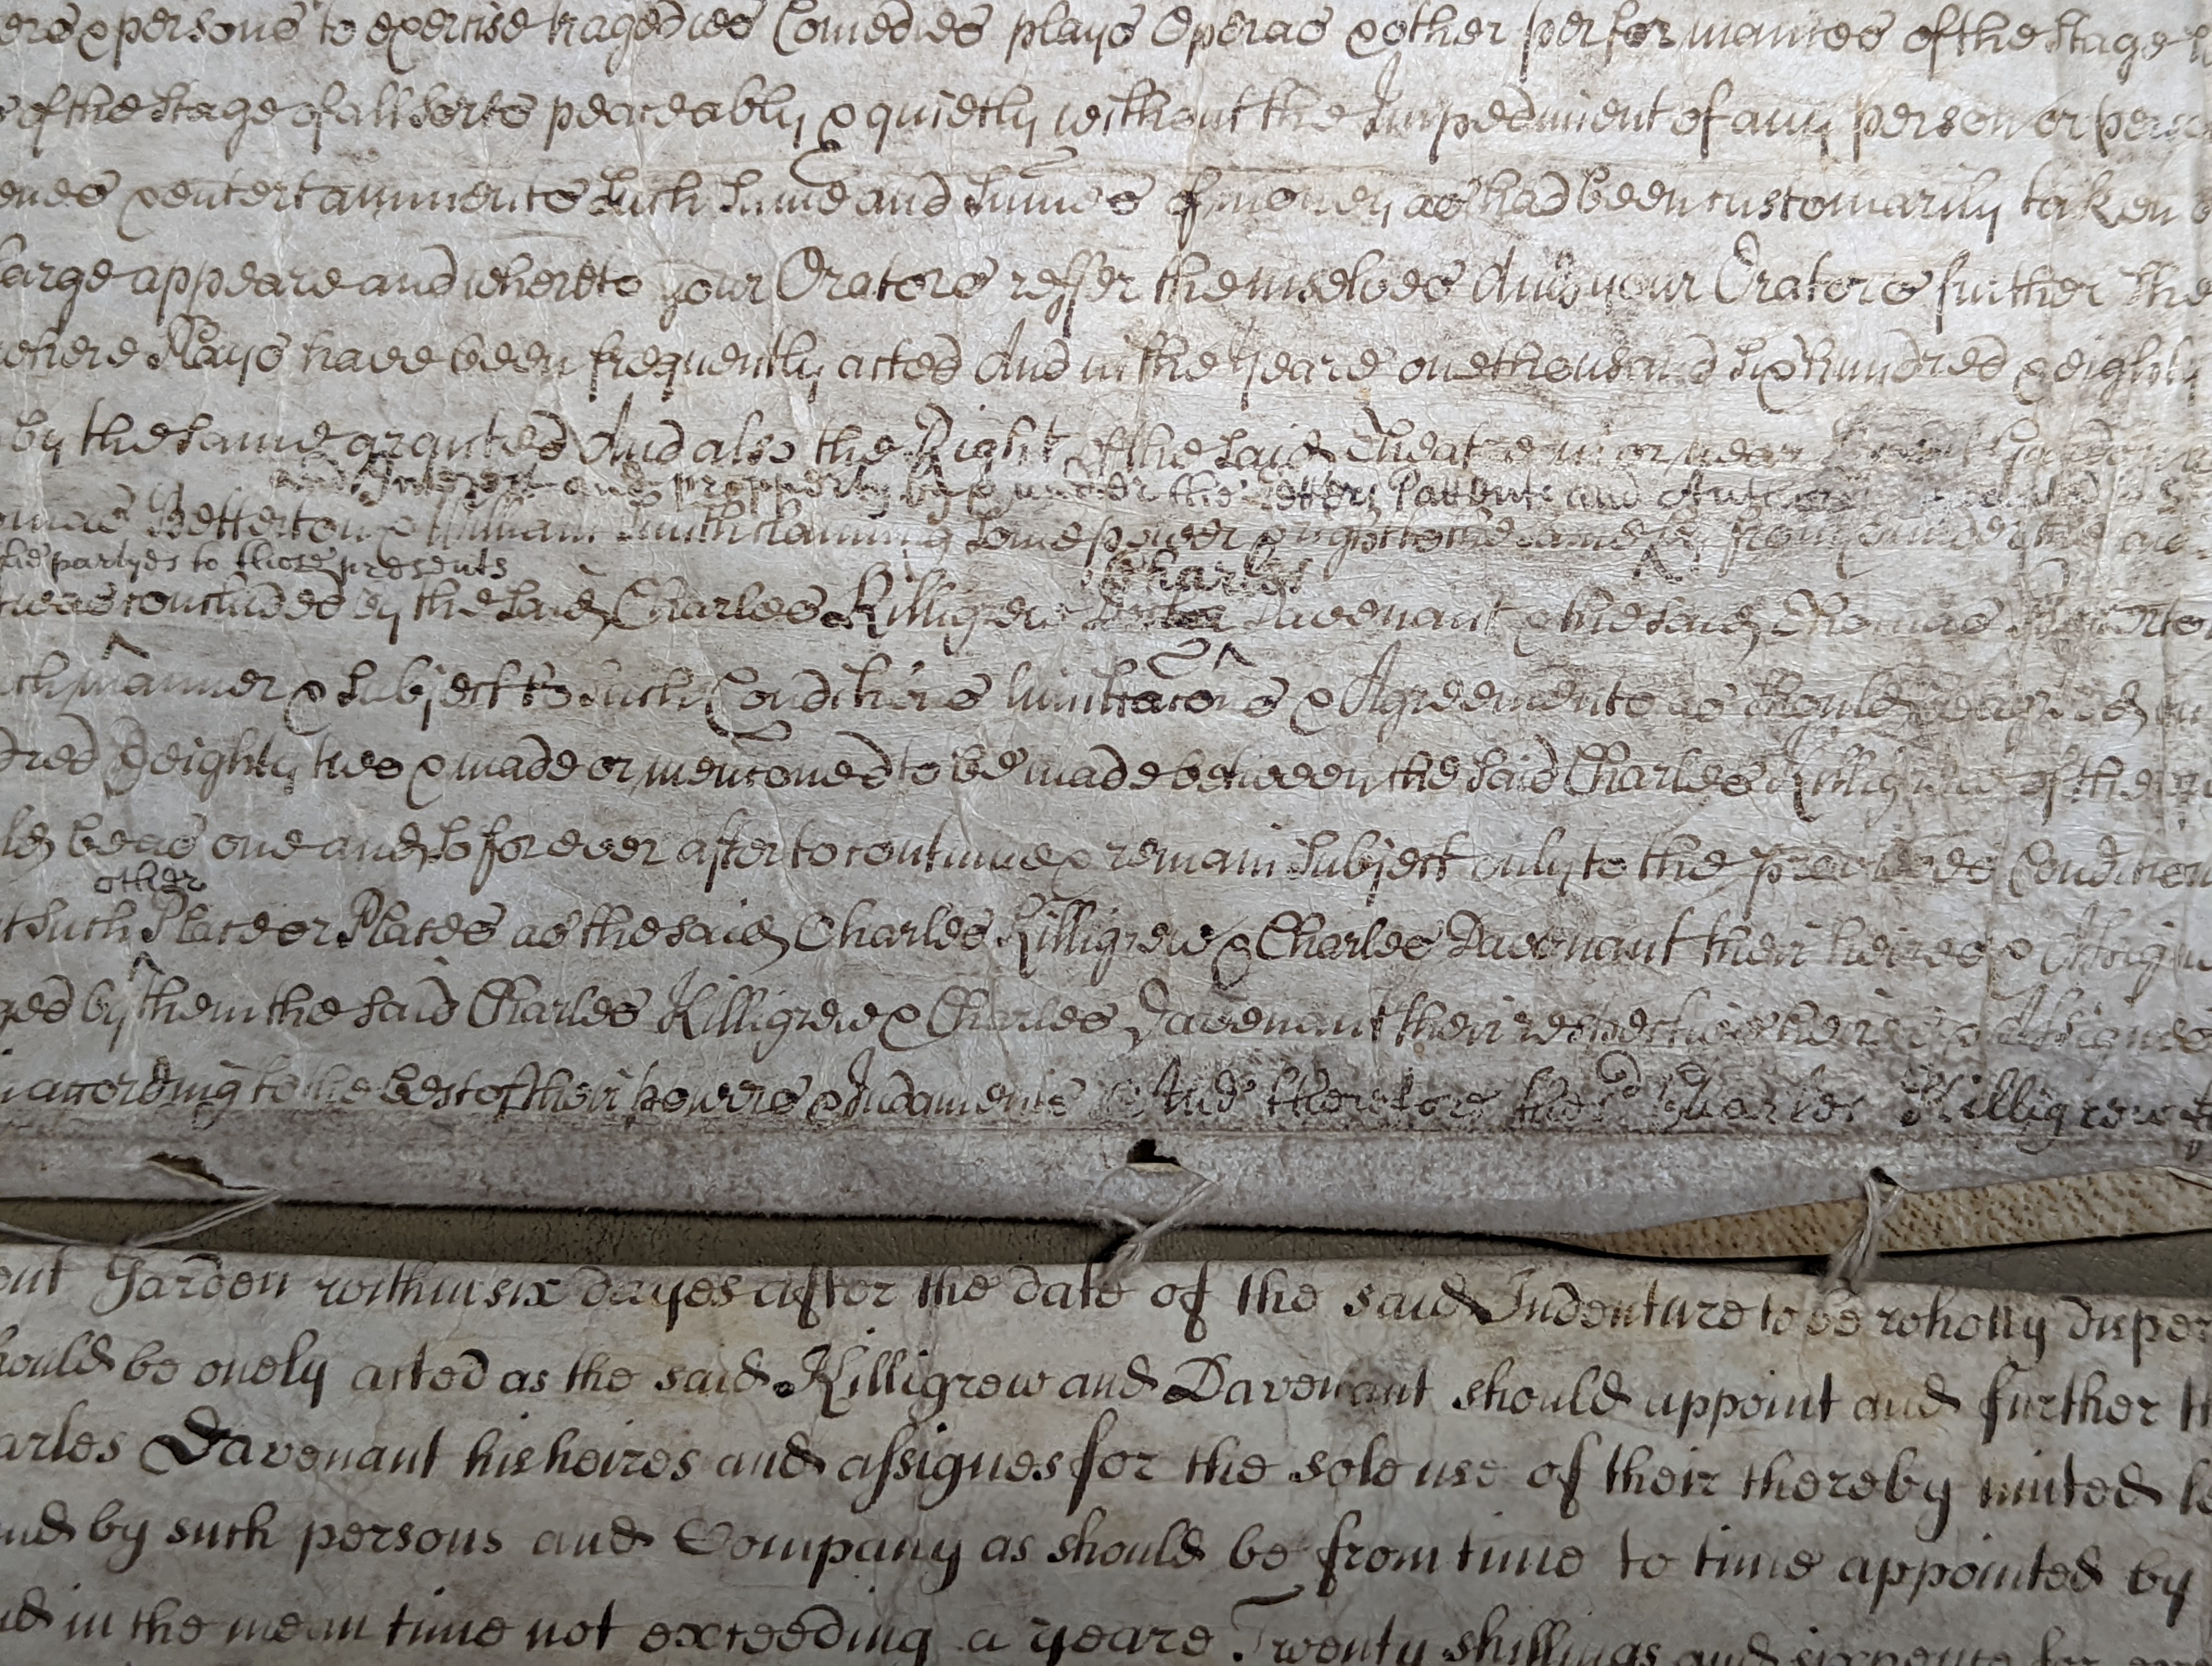 ers & persons to exercise tragedies Comedies plays Operas & other performances of the Stage
s of the Stage of all sorts peaceably & quietly without the Impediment of any person or perso
enes & entertainments such summe and summes of money as had been customarily taken
large appeare and whereto your Orators reffer themselves And your Orators further She
where Plays have been frequently acted And in the yeare one thousand six hundred & eighty
by the same granted And also the Right of the said Theatre in or near Garden
and Interest and property by & under the letters Pattents and
omas Betterton & William Smith claiming some power & right to the same by from & under the
the partyes to those presents
Charles
was concluded by the said Charles Killigrew Davenant & the said Thomas
uch manner & Subject to such Conditions limitacons & Agreements as should be agreed
dred & eighty two & made or menconed to be made between the said Charles Killigrew of the
ld be as one and so for ever after to continue & remain Subject only to the Condicon
other
t such Place or Places as the said Charles Killigrew & Charles Davenant their heires & Assign
ged by them the said Charles Killigrew & Charles Davenant their respective heires & Assignes
according to the best of their powers & Judgments And therefore the sd Charles Killigrew
ent Garden within six dayes after the date of the said Indenture to be wholly disper
hould be onely acted as the said Killigrew and Davenant should appoint and further th
arles Davenant his heires and assignes for the sole use of their thereby united
nd by such persons and Company as should be from time to time appointed by
nd in the mean time not exceeding a yeare Twenty shillings and sixpence for